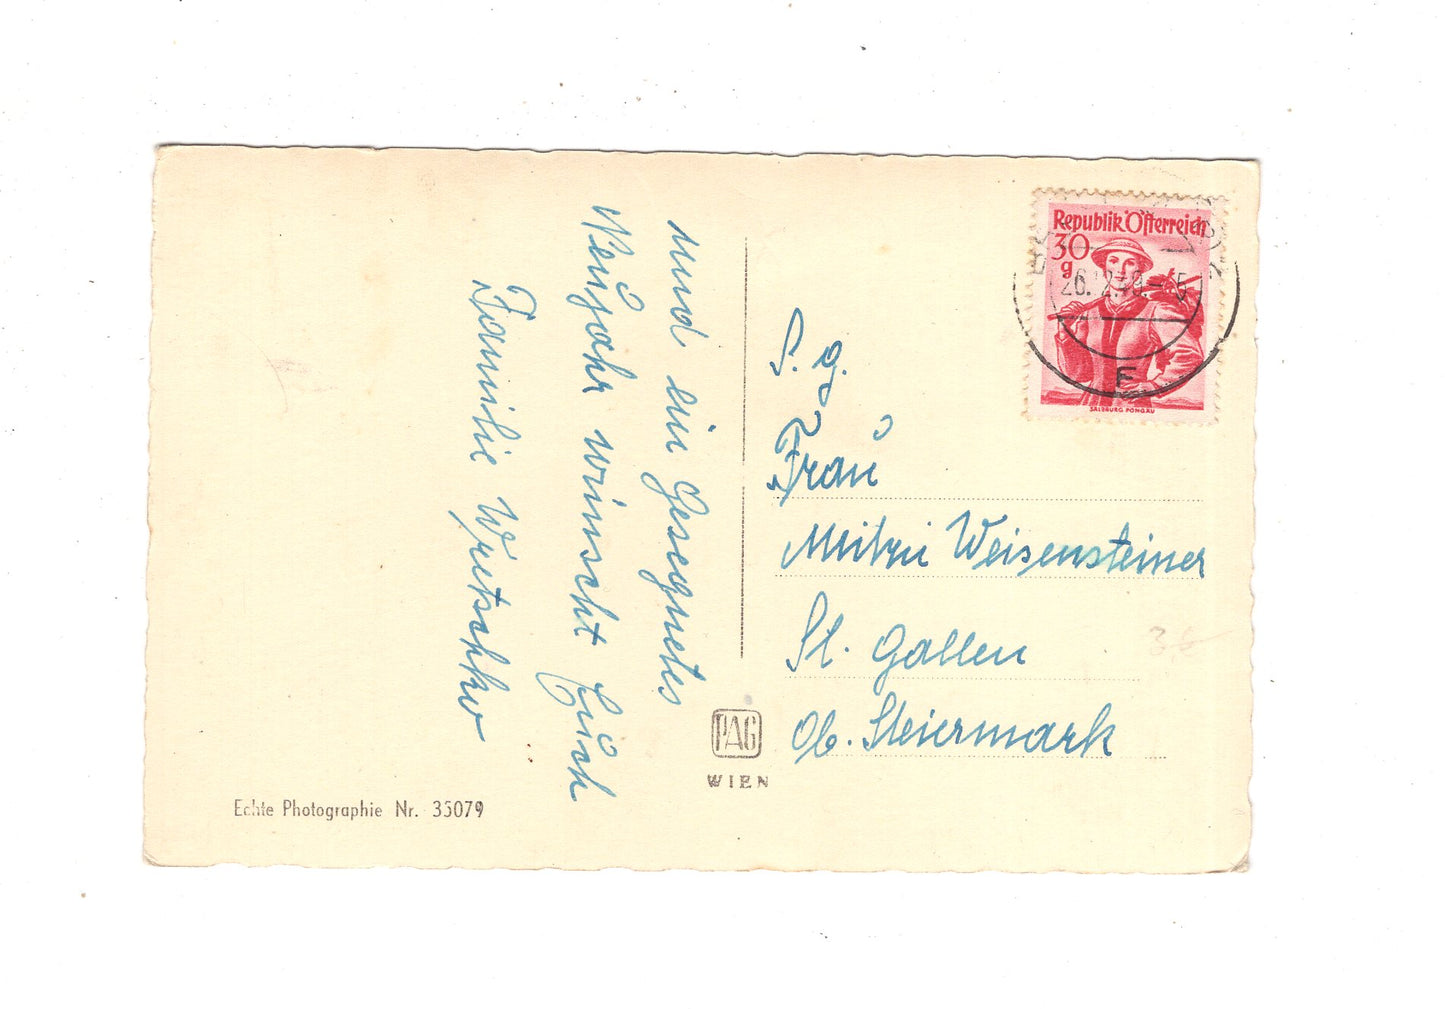 und ein Gesegnetes
Neujahr wünscht Euch
Familie Wretschko
Republik Österreich
30
g
26.12.49
F
SALZBURG PONGAU
S. g.
Frau
Mitzi Weisensteiner
St. Gallen
Ob. Steiermark
PAG
WIEN
Echte Photographie Nr. 35079